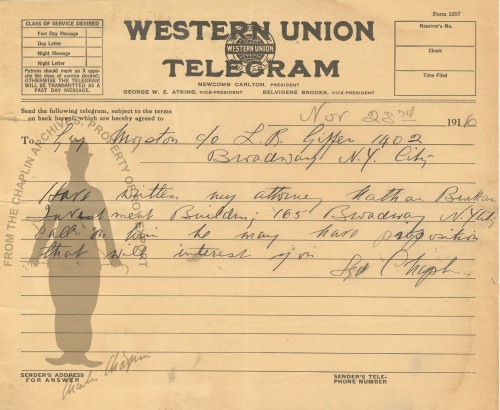 Form 1207
CLASS OF SERVICE DESIRED
Fast Day Message
Day Letter
Night Message
Night Letter
Patrons should mark an X opposite the class of service desired;
OTHERWISE THE TELEGRAM
WILL BE TRANSMITTED AS A
FAST DAY MESSAGE.
WESTERN UNION
WESTERN UNION
TELEGRAM
NEWCOMB CARLTON, PRESIDENT
GEORGE W. E. ATKINS, VICE-PRESIDENT BELVIDERE BROOKS, VICE-PRESIDENT
Receiver's No.
Check
Time Filed
Send the following telegram, subject to the terms
on back hereof, which are hereby agreed to
Nov 23rd 1916
To Guy c/o L. B. 1402
Broadway N.Y. City
Have written my attorney Nathan Burkan
Investment Building 165 Broadway N.Y. City
call on him he may have proposition
that will interest you
Syd Chaplin
FROM THE CHAPLIN ARCHIVES, PROPERTY OF ROY EXPORT
Charlie Chaplin
SENDER'S ADDRESS
FOR ANSWER
SENDER'S TELE-
PHONE NUMBER